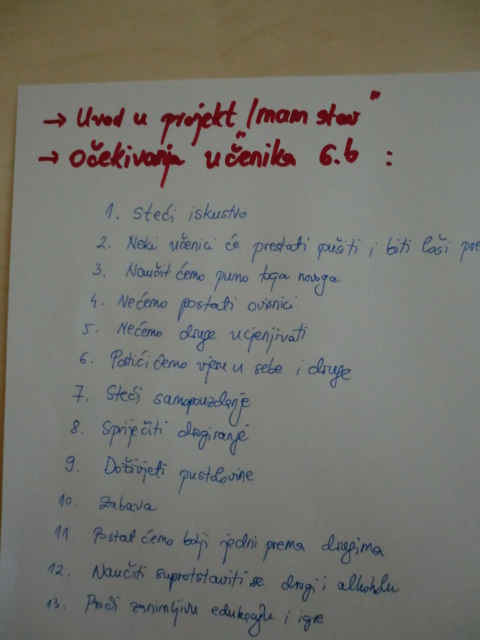 → Uvod u projekt "Imam stav"
→ Očekivanja učenika 6.b :
1. Steći iskustvo
2. Neki učenici će prestati pušiti i biti loši
3. Naučit ćemo puno toga novoga
4. Nećemo postati ovisnici
5. Nećemo druge ucjenjivati
6. Potići ćemo vjeru u sebe i druge
7. Steći samopouzdanje
8. Spriječiti drogiranje
9. Doživjeti pustolovine
10. Zabava
11. Postat ćemo bolji jedni prema drugima
12. Naučiti suprotstaviti se drogi i alkoholu
13. Proći zanimljivu edukaciju i igre